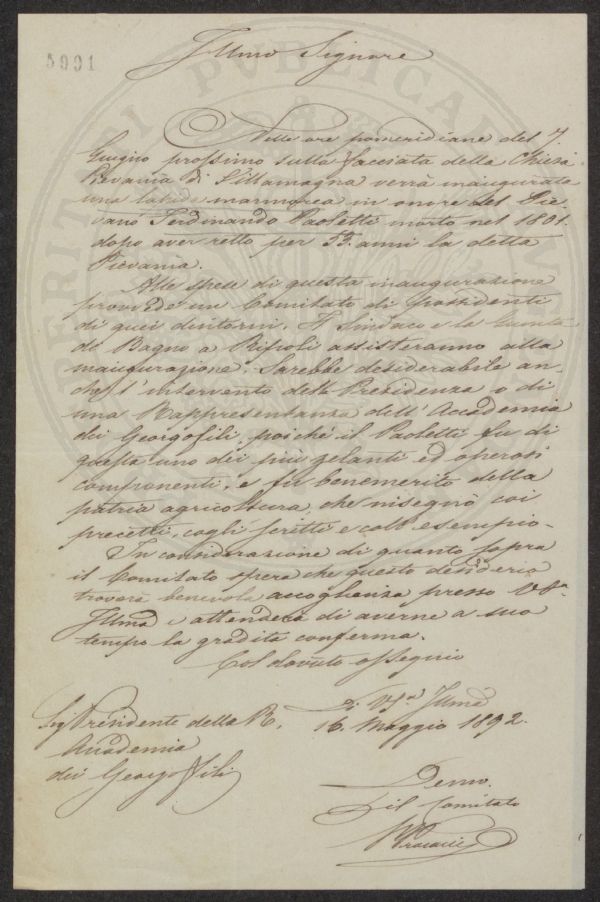 5991
Illmo Signore
Nelle ore pomeridiane del 7.
Giugno prossimo sulla facciata della Chiesa
Pievania di Villamagna verrà inaugurata
una lapide marmorea in onore del Pie-
vano Ferdinando Paoletti morto nel 1801.
dopo aver retto per 55. anni la detta
Pievania.
Alle spese di questa inaugurazione
provvede un Comitato di possidenti
di quei dintorni. Il Sindaco e la Giunta
di Bagno a Ripoli assisteranno alla
inaugurazione. Sarebbe desiderabile an-
che l'intervento della Presidenza o di
una Rappresentanza dell'Accademia
dei Georgofili, poiché il Paoletti fu di
questa uno dei più zelanti ed operosi
componenti, e fu benemerito della
patria agricoltura, che insegnò coi
precetti, cogli scritti e coll'esempio.
In considerazione di quanto sopra
il Comitato spera che questo desiderio
troverà benevola accoglienza presso V. S.
Illma e attenderà di averne a suo
tempo la gradita conferma.
Col dovuto ossequio
Di V. S. Illma
Sig Presidente della R.
16. Maggio 1892.
Accademia
dei Georgofili
Devmo.
il Comitato
PERITARI PUBLICAE